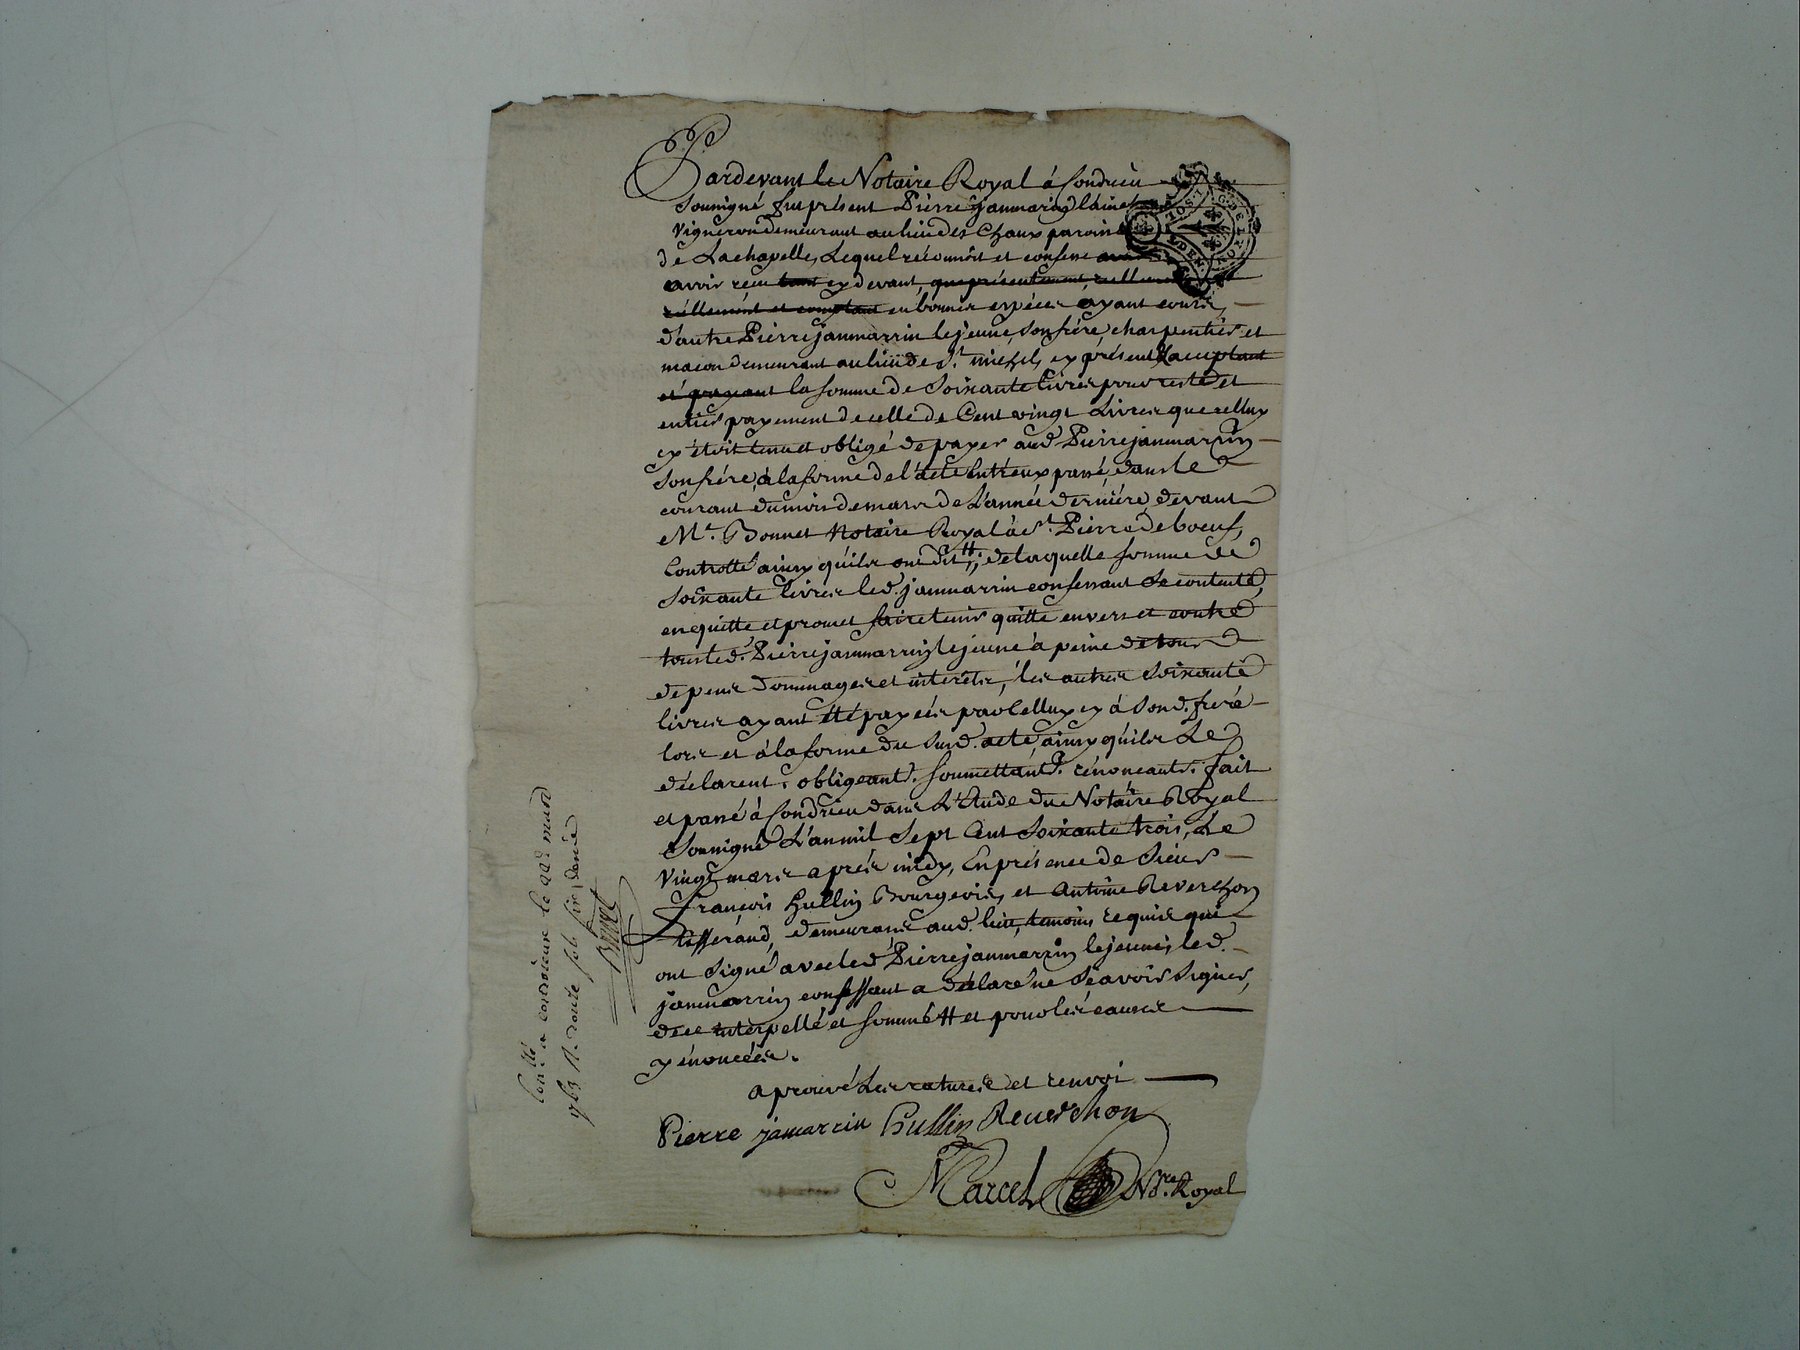 Pardevant le Notaire Royal à Condrieu
Soussigné fut présent Pierre janmarin l'ainé
vigneron demeurant au lieu des Chaux paroisse
de Lachapelle, Lequel reconnoit et confesse
avoir recu tout cy devant, que présentement, rellement
réllement et comptant en bonnes espéces ayant cours,
d'autre Pierre janmarrin le jeune, Son frére, charpentier et
macon demeurant au lieu de St. michel, cy présent acceptant
et payant la Somme de Soixante livres pour reste et
entier payement de celle de Cent vingt Livres que celluy
cy étoit tenu et obligé de payer aud. Pierre janmarrin
Son frére, à la forme de l'acte Entr'eux passé, dans le
courant du mois de mars de L'année derniére, devant
Me. Bonnet Notaire Royal à St. Pierre de boeuf,
Controllé ainsy qu'ils ont dit; de laquelle Somme de
Soixante livres led. janmarrin confessant Se contente,
en quitte et promet faire tenir quitte envers et contre
tous led. Pierre janmarrin le jeune à peine de tous
depens dommages et interéts, les autres Soixante
livres ayant été payées par Celluy cy à Sond. frere
lors et à la forme du Susd. acte, ainsy qu'ils Le
déclarent. obligeant. Soumettant. rénonceant. fait
et passé à Condrieu dans L'Etude du Notaire Royal
Soussigné L'an mil Sept Cent Soixante trois, Le
vingt mars aprés midy, En présence de Sieur
François Hullin Bourgeois, et Antoine Reverchon
tisserand, demeurans aud. lieu, temoins requis qui
ont Signé avec led. Pierre janmarrin le jeune, led.
janmarrin confessant a déclaré ne Scavoir Signer,
de ce interpellé et Sommé et pour les causes
y énoncées.
aprouvé Les ratures et renvoi
Pierre jamarrin Hullin Reverchon
Marcel Nre. Royal
Conllé a condrieux le 22 mars
1763 R. douze sols six den